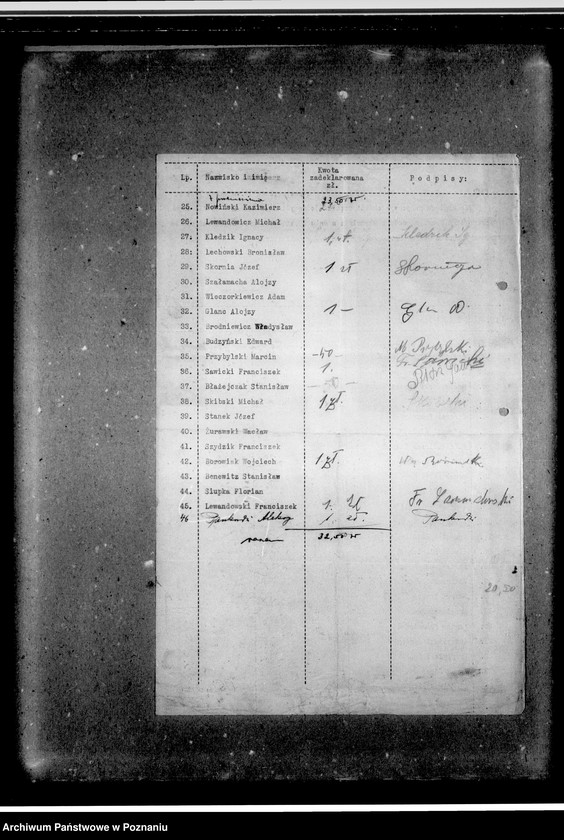 Lp. Nazwisko i imię Kwota zadeklarowana zł. Podpisy:
z przeniesienia 23,50 zł
25. Nowiński Kazimierz
26. Lewandowicz Michał
27. Kledzik Ignacy 1, zł. Kledzik Ig
28. Lechowski Bronisław
29. Skornia Józef 1 zł
30. Szałamacha Alojzy
31. Wieczorkiewicz Adam
32. Glanc Alojzy 1 —
33. Brodniewicz Władysław
34. Budzyński Edward
35. Przybylski Marcin —50 M. Przybylski
36. Sawicki Franciszek 1.
37. Błażejczak Stanisław
38. Skibski Michał 1 zł.
39. Stanek Józef
40. Żurawski Wacław
41. Szydzik Franciszek
42. Borowiak Wojciech 1 zł.
43. Benewitz Stanisław
44. Słupka Florian
45. Lewandowski Franciszek 1. zł Fr Lewandowski
46 1. zł.
razem 32,50 zł
20,50
Archiwum Państwowe w Poznaniu